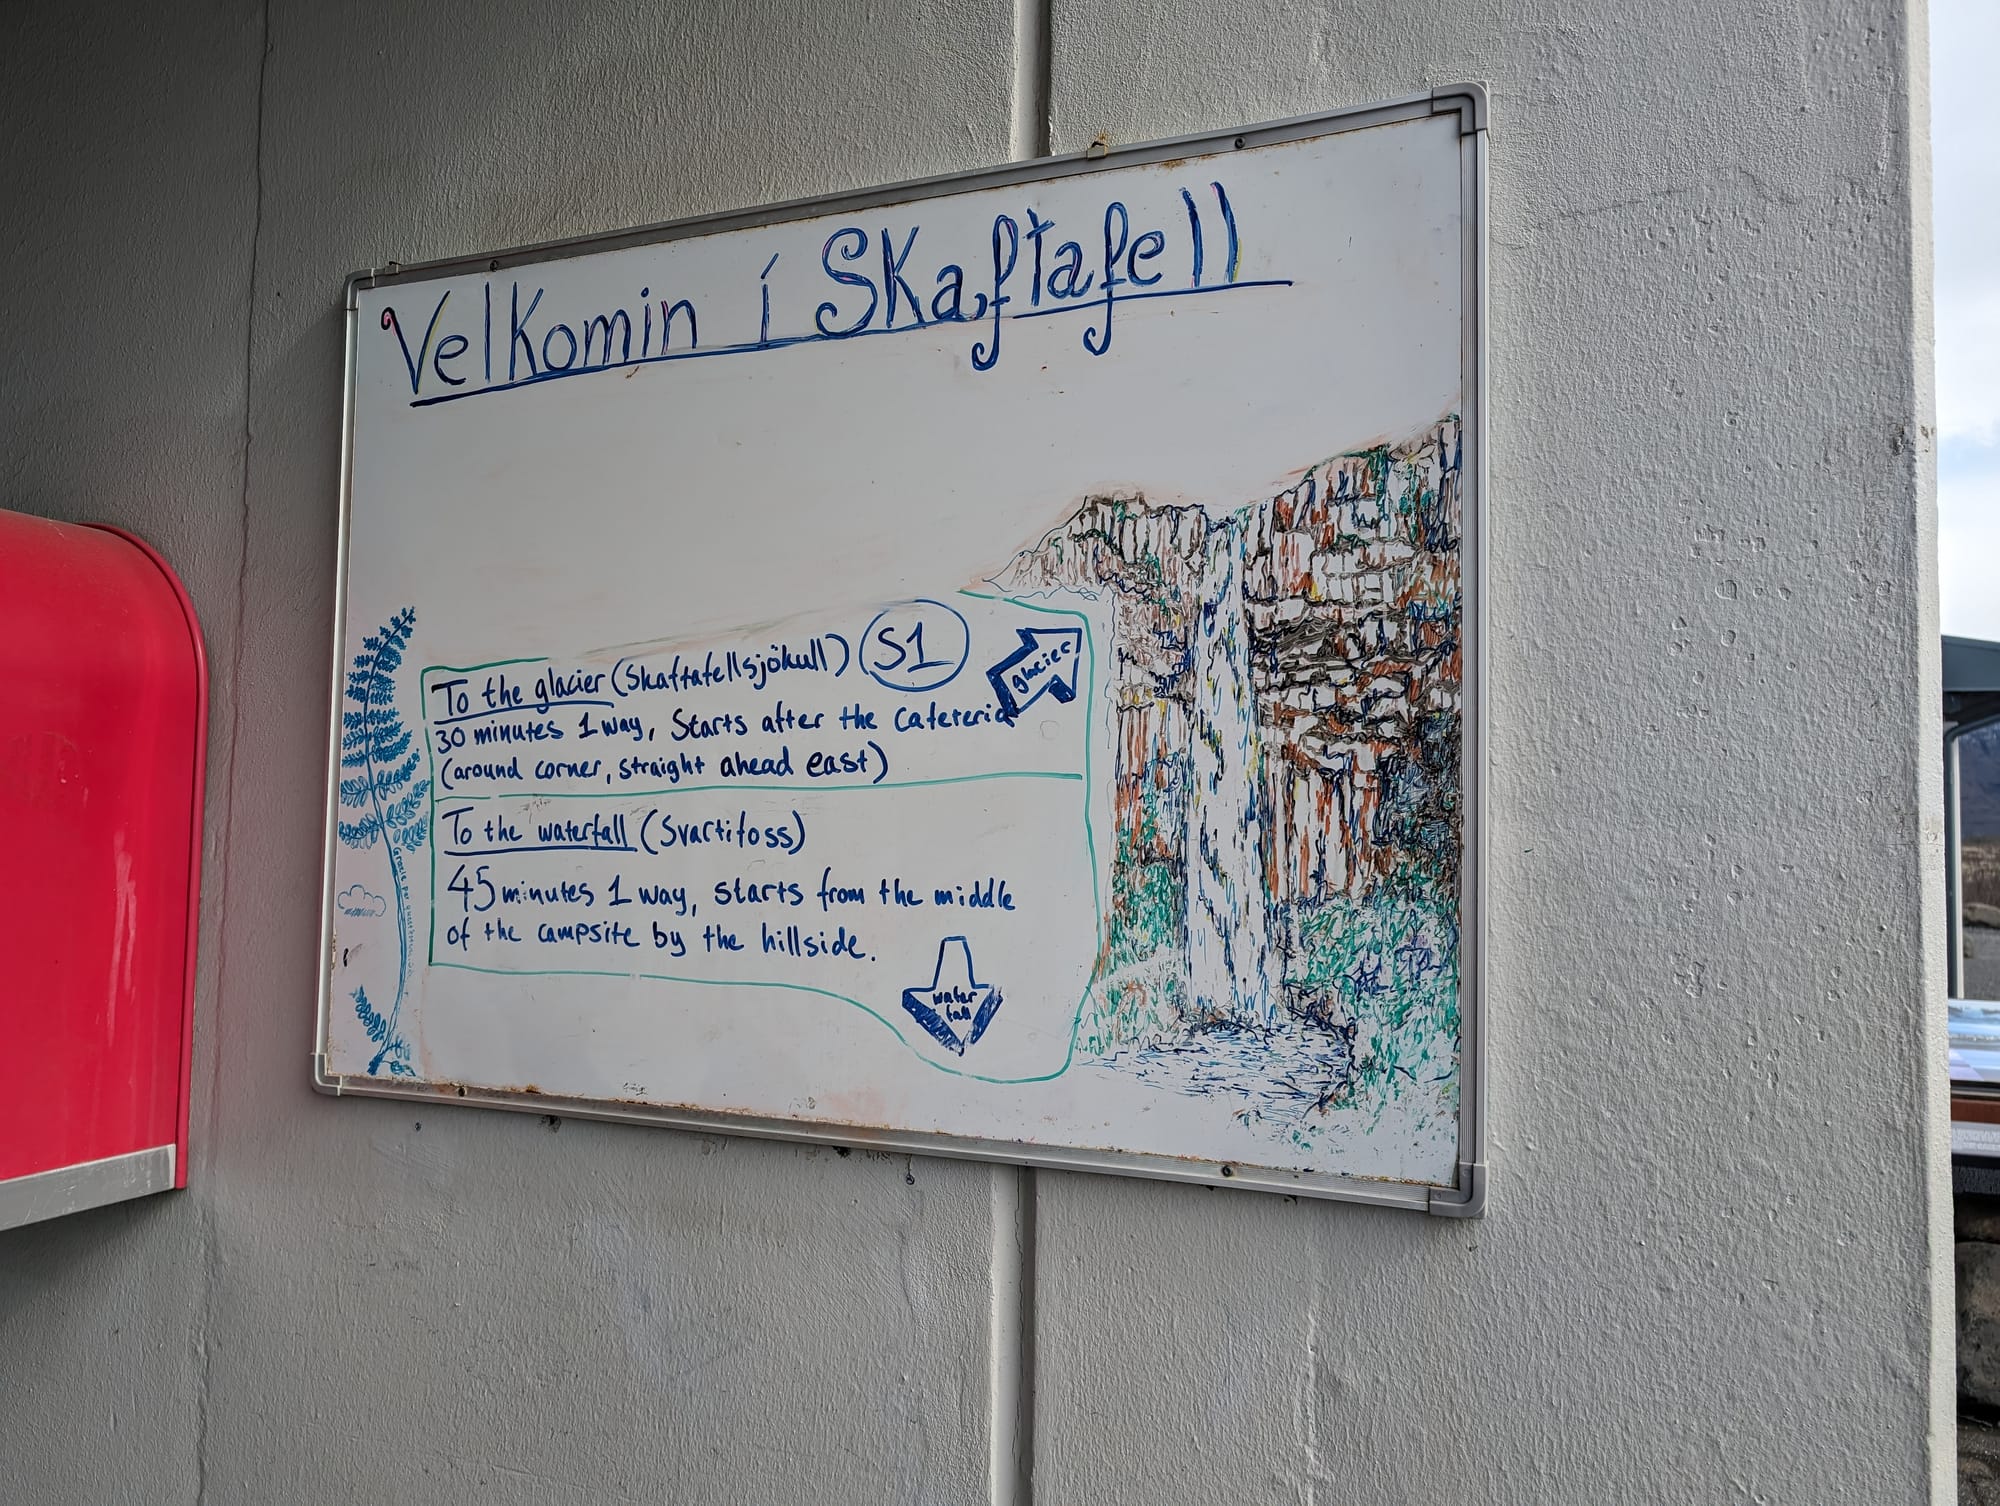 Velkomin í Skaftafell
To the glacier (Skaftafellsjökull) S1
glacier
30 minutes 1 way, Starts after the cafeteria
(around corner, straight ahead east)
To the waterfall (Svartifoss)
45 minutes 1 way, starts from the middle
of the campsite by the hillside.
water
fall